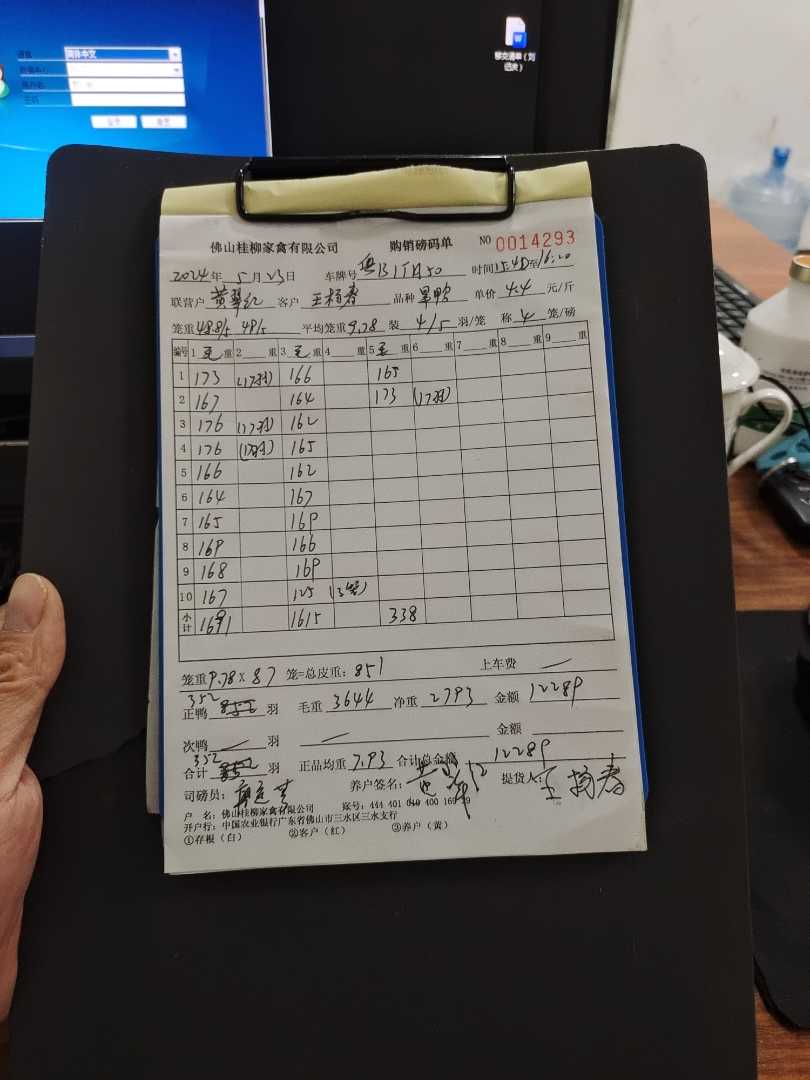 简体中文
移交清单（刘
佛山桂柳家禽有限公司 购销磅码单 NO 0014293
2024年 5月23日 车牌号 时间15:40至16:20
联营户 黄翠红 客户 王杨春 品种 单价 4.4 元/斤
笼重48.8/5 49/5 平均笼重9.78 装 4/5 羽/笼 称 4 笼/磅
编号 1 毛 重 2 重 3 毛 重 4 重 5 毛 重 6 重 7 重 8 重 9 重
1 173 (17羽) 166 165
2 167 164 173 (17羽)
3 176 (17羽) 162
4 176 (17羽) 165
5 166 162
6 164 167
7 165 169
8 169 166
9 168 169
10 167 125 (3笼)
小计 1691 1615 338
笼重9.78×87 笼=总皮重：851 上车费
352
正鸭 852 羽 毛重 3644 净重 2793 金额 12289
次鸭 羽 金额
352
合计 852 羽 正品均重 7.93 合计总金额 12289
司磅员： 养户签名： 提货人：王杨春
户 名：佛山桂柳家禽有限公司 账号：444 401 040 400 169 29
开户行：中国农业银行广东省佛山市三水区三水支行
①存根（白） ②客户（红） ③养户（黄）